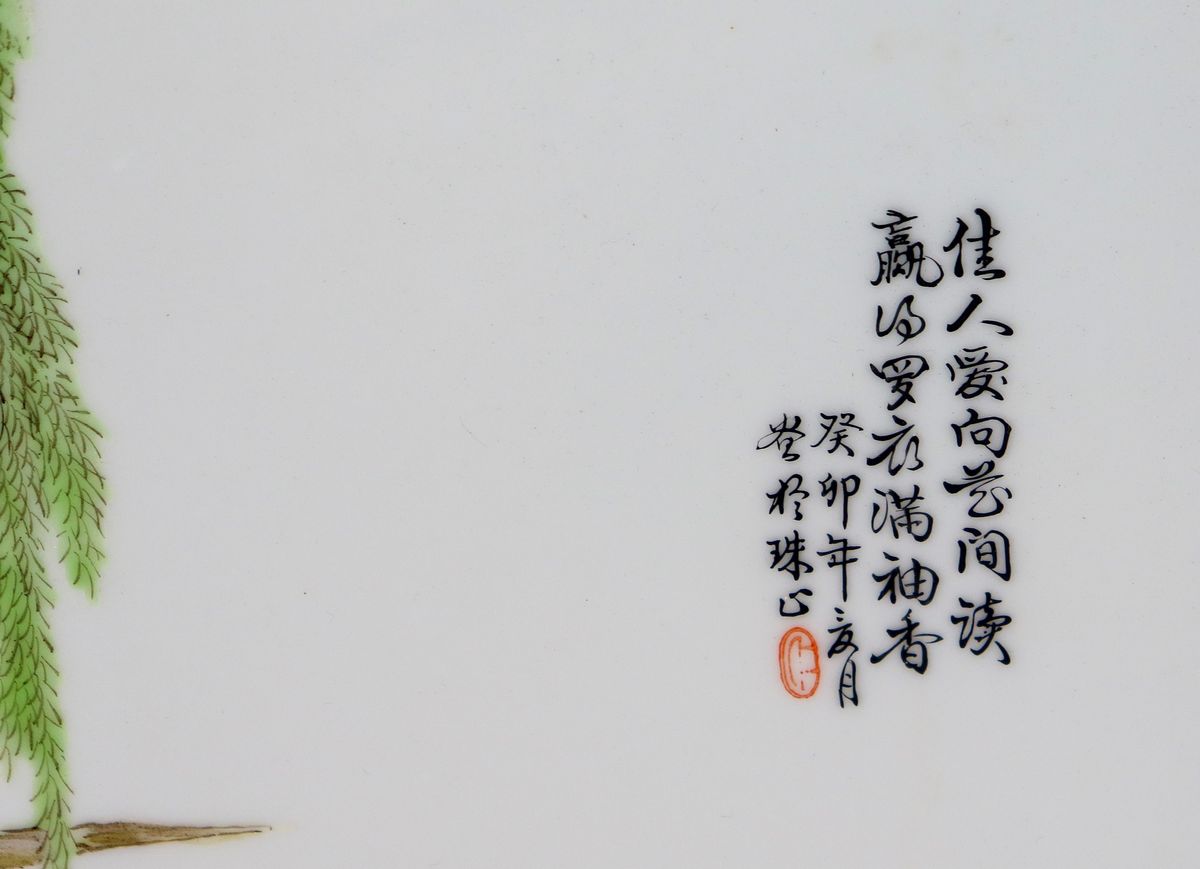 佳人愛向花间读
赢得罗衣满袖香
癸卯年夏月
於珠山